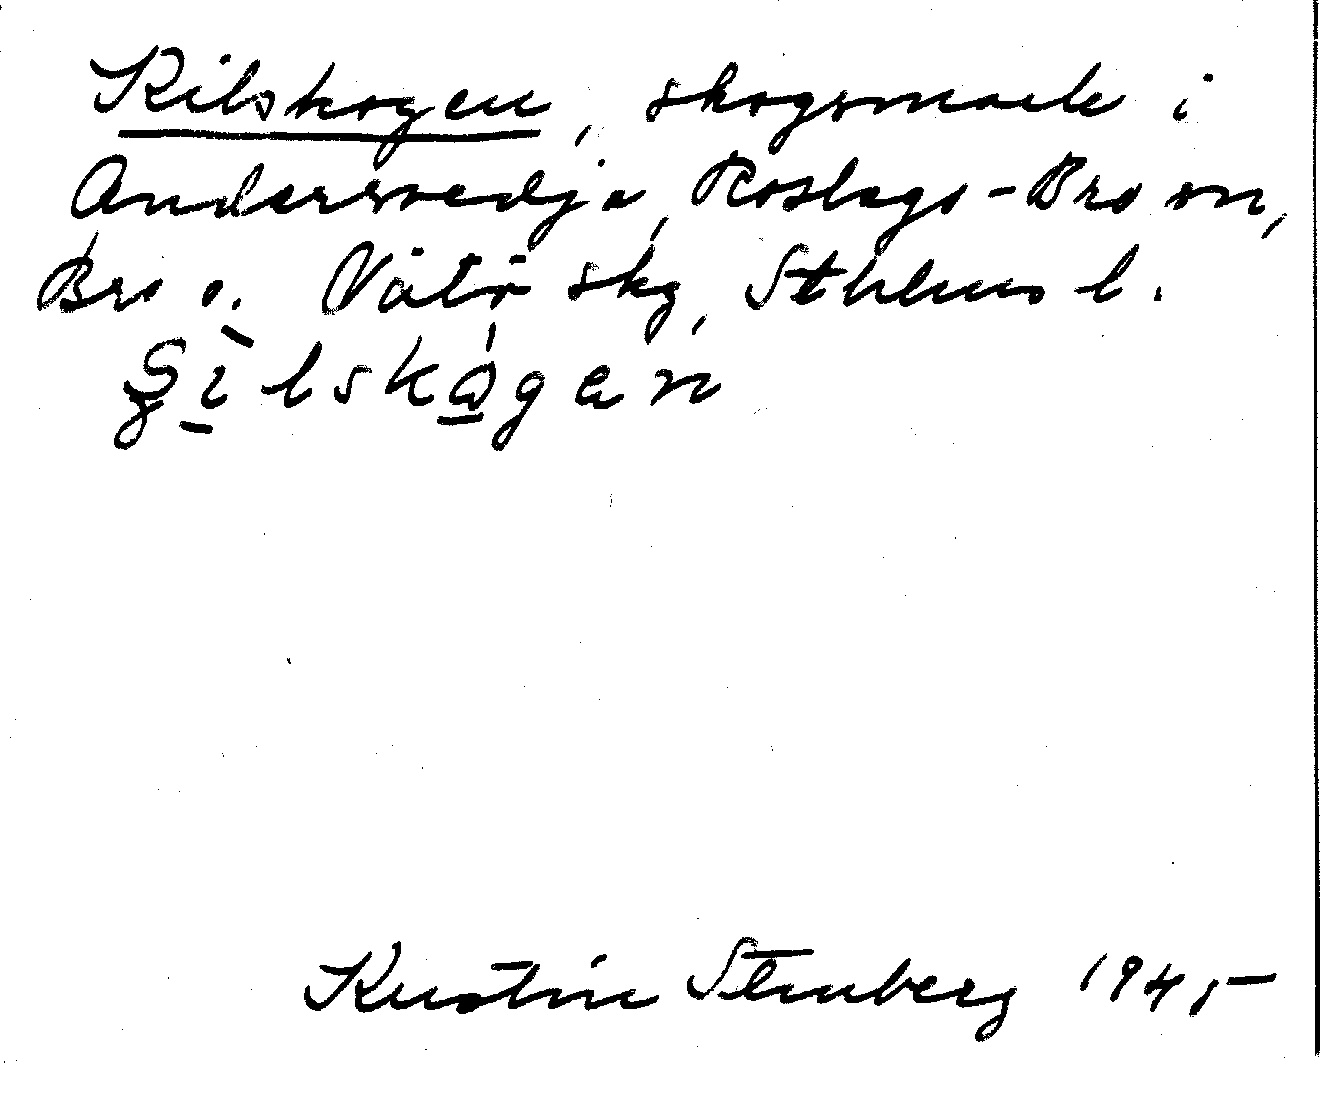 Kilskogen, skogsmark i
Andersvedja, Roslags-Bro sn,
Bro o. Vätö skg, Sthlms l.
ilskogen
Kerstin Stenberg 1945